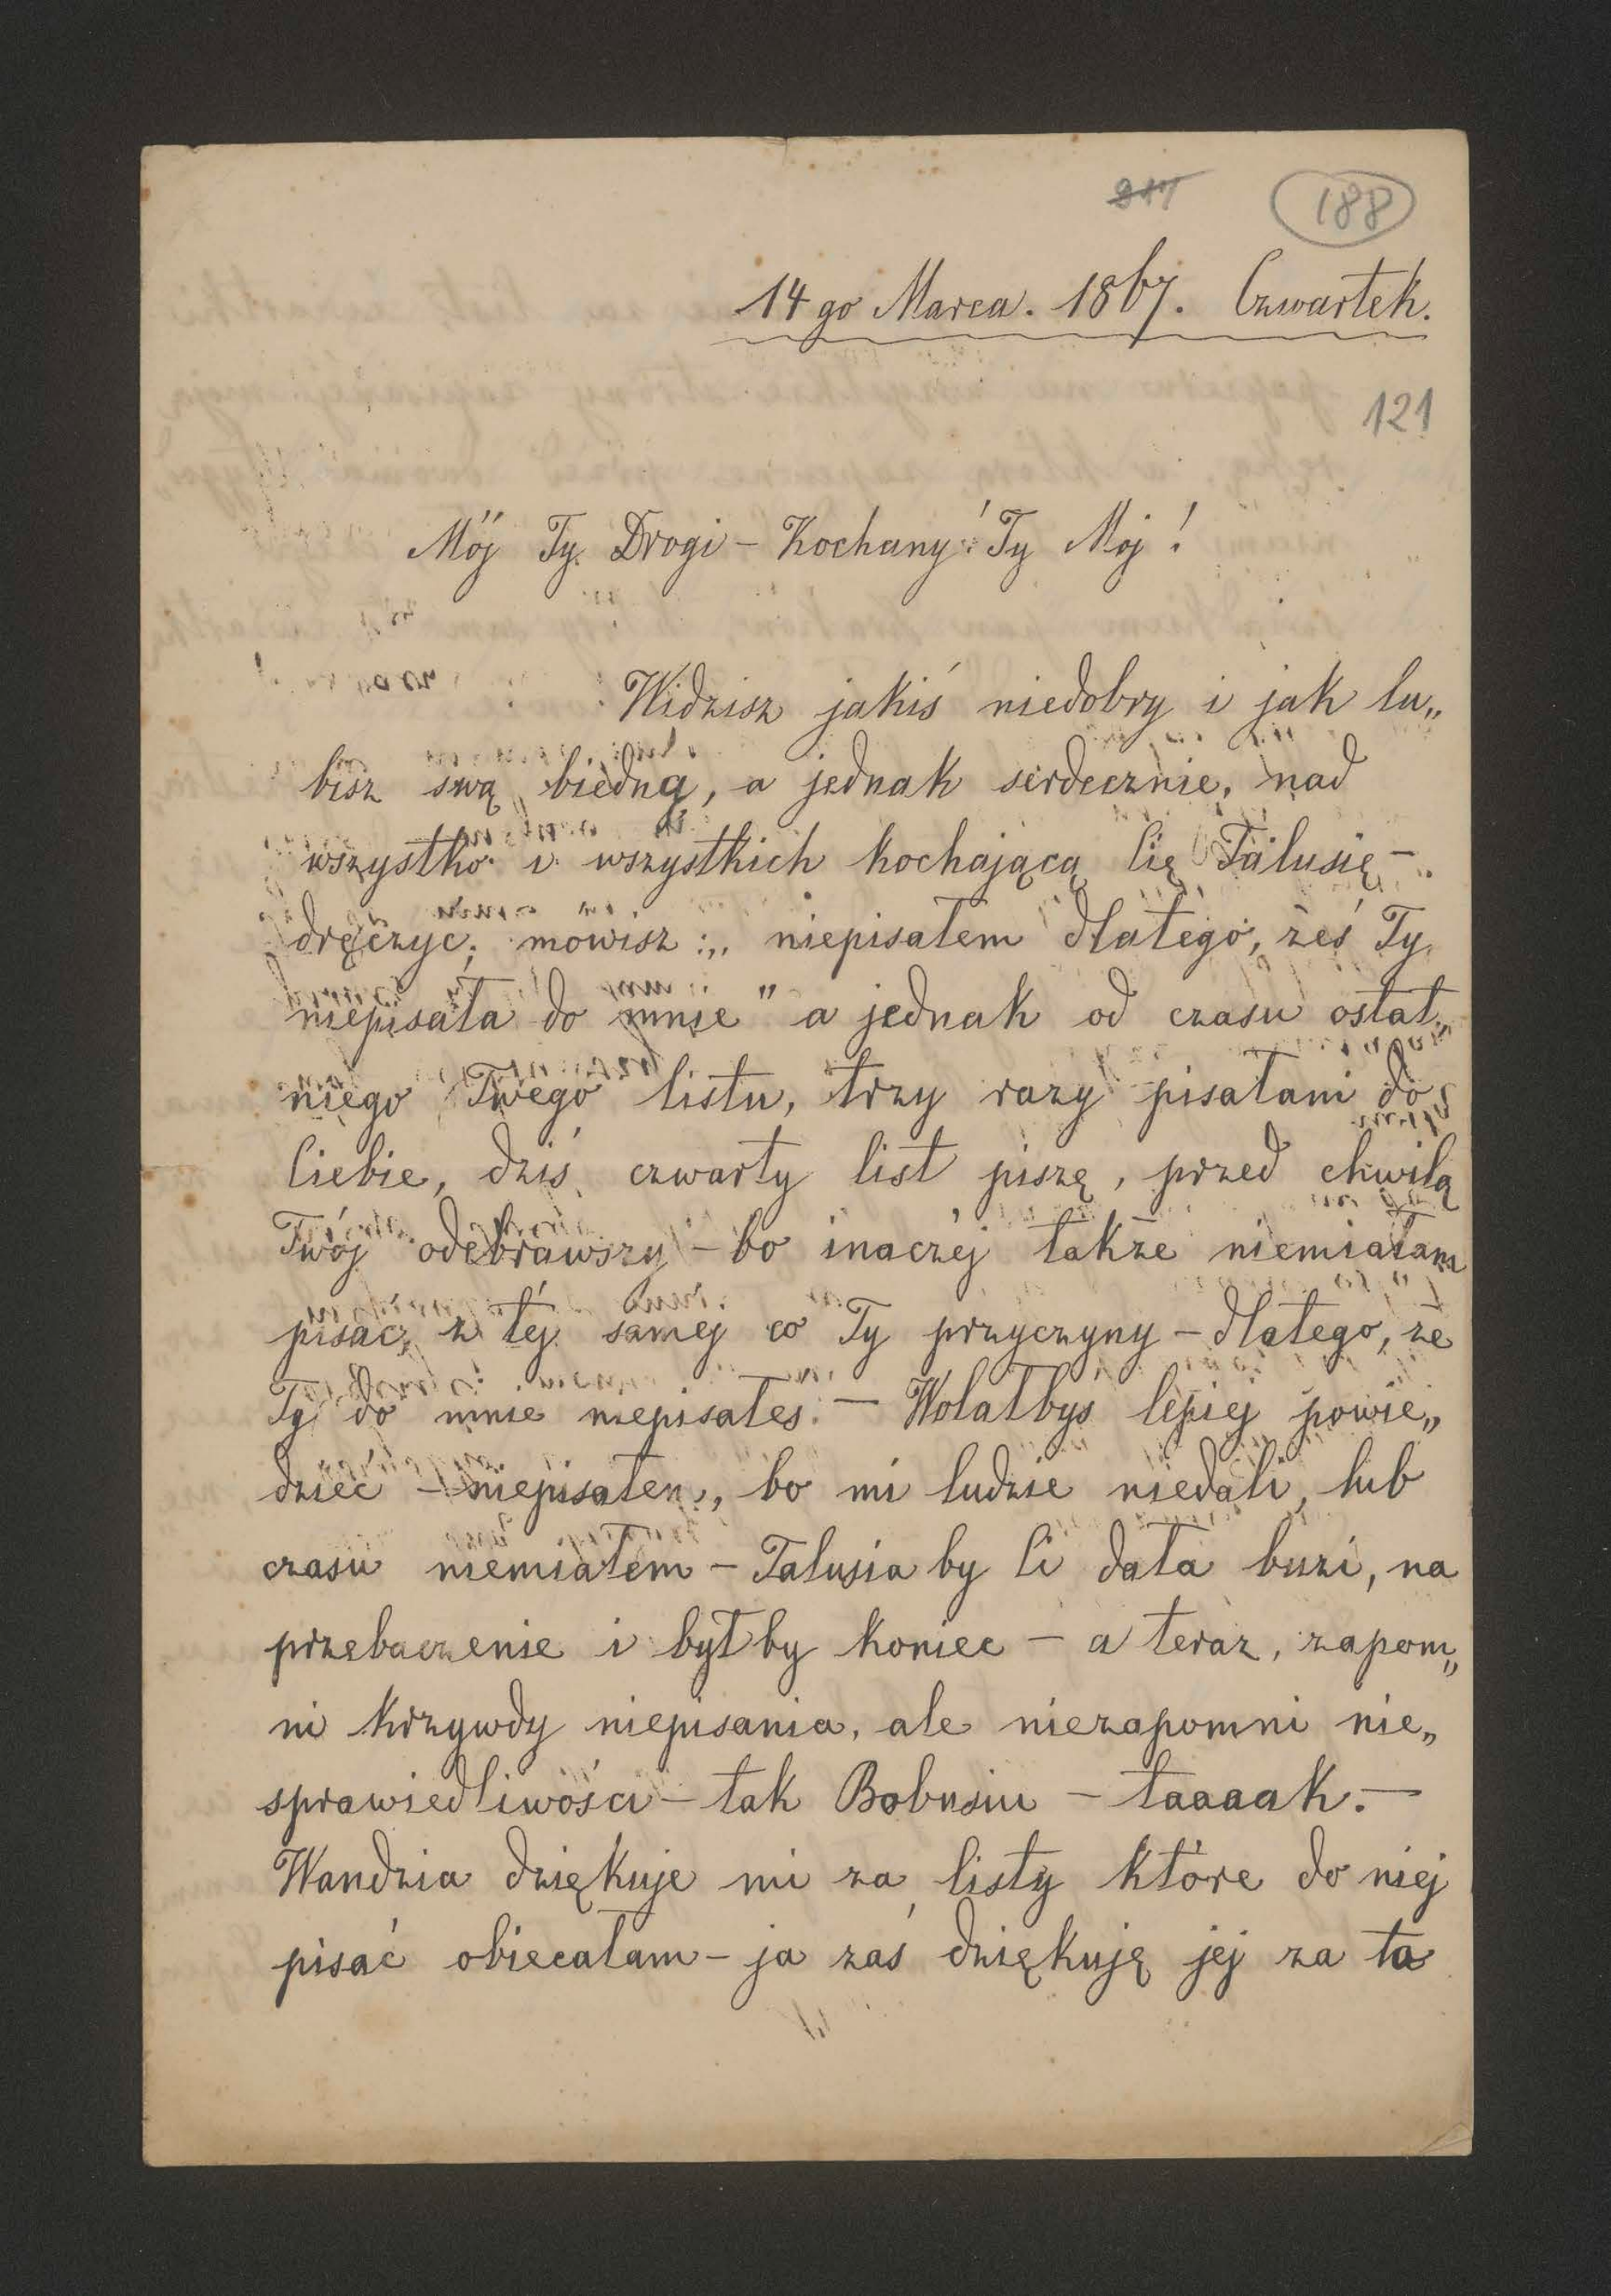 817 188
14 go Marca. 1867. Czwartek.
121
Mój Ty Drogi – Kochany! Ty Mój!
Widzisz jakiś niedobry i jak lu„
bisz swą biedną, a jednak serdecznie, nad
wszystko i wszystkich kochającą Cię Talusię –
dręczyć; mówisz: „niepisałem dlatego, żeś Ty
niepisała do mnie" a jednak od czasu ostat„
niego Twego listu, trzy razy pisałam do
Ciebie, dziś czwarty list piszę, przed chwilą
Twój odebrawszy – bo inaczéj także niemiałam
pisać, z téj samej co Ty przyczyny – dlatego, że
Ty do mnie niepisałeś. – Wolałbyś lepiej powie„
dzieć – niepisałem, bo mi ludzie niedali, lub
czasu niemiałem – Talusia by Ci dała buzi, na
przebaczenie i byłby koniec – a teraz, zapom„
ni krzywdy niepisania, ale niezapomni nie„
sprawiedliwości – tak Bobusiu – taaaak. –
Wandzia dziękuje mi za listy które do niej
pisać obiecałam – ja zaś dziękuję jej za ta